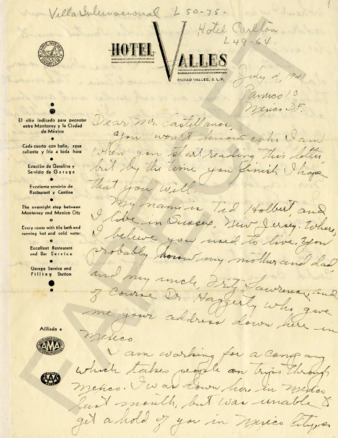 Villa Internacional L 50-75-
Hotel Carlton
L 49-64
HOTEL VALLES
CIUDAD VALLES, S. L. P.
July 2, 1941
Mexico D.F.
El sitio indicado para pernoctar
entre Monterrey y la Ciudad
de México
Cada cuarto con baño, agua
caliente y fría a toda hora
Estación de Gasolina y
Servicio de Garage
Excelente servicio de
Restaurant y Cantina
The overnight stop between
Monterrey and Mexico City
Every room with tile bath and
running hot and cold water
Excellent Restaurant
and Bar Service
Garage Service and
Filling Station
Afiliado a
AMA
AAA
Dear Mr. Castellanos,
You won't know who I am
when you start reading this letter
but by the time you finish I hope
that you will.
My name is Ted Holbert and
I live in Sussex, New Jersey where
I believe you used to live. You
probably know my mother and dad
and my uncle, Frit Lawrence, and
of course Dr. Haggerty who gave
me your address down here in
Mexico
I am working for a company
which takes people on trips through
Mexico. I was down here in Mexico
last month, but was unable to
get a hold of you in Mexico City